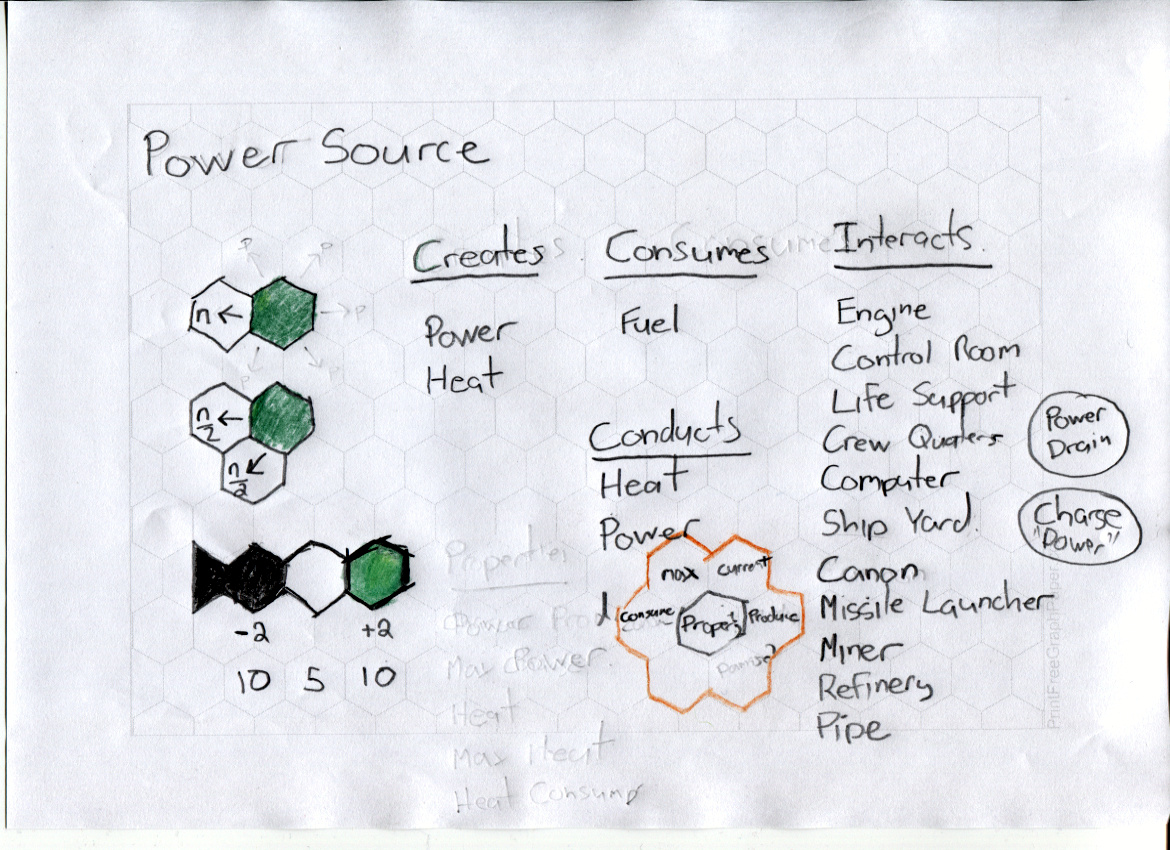 Power Source
Creates
Power
Heat
Consumes
Fuel
Conducts
Heat
Power
Interacts.
Engine
Control Room
Life Support
Crew Quaters
Computer
Ship Yard.
Canon
Missile Launcher
Miner
Refinery
Pipe
Power
Drain
Charge
"Power"
P
P
n ←
→ P
P
P
n/2 ←
n/2
-2 +2
10 5 10
Properties
Power Prod
Max Power.
Heat
Max Heat
Heat Consump
max current
consume Property Produce
PrintFreeGraphPaper